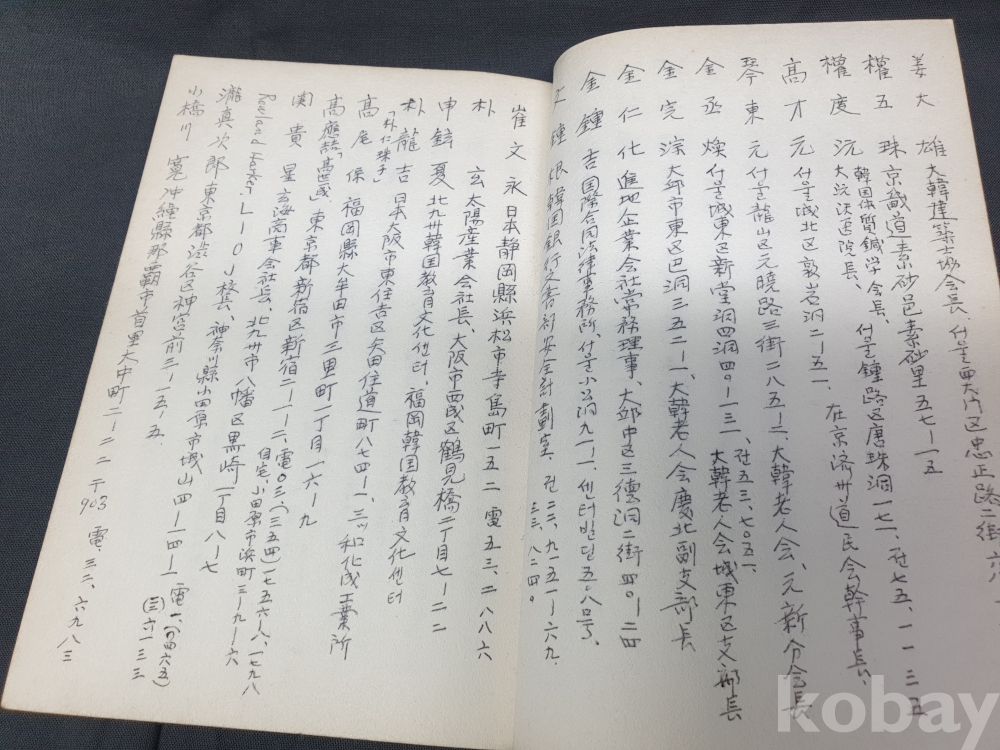 姜大雄 大韓建築士協会長、서울西大门区忠正路二街
權五珠 京畿道素砂邑素砂里五七ー一五
權度沅 韓国体質鍼学会長、서울鍾路区唐珠洞一七一、전七五、一一三五
大沅汉医院長、
高才元 서울城北区敦岩洞二ー五一、在京济州道民会幹事長、
琴東元 서울龍山区元曉路三街二八五ー二、大韓老人会、元新分会長
金丞煥 서울城東区新堂洞四洞四〇ー一三、전五三、七〇五一、大韓老人会城東区支部長
金完淙 大邱市東区巴洞三五二ー一、大韓老人会慶北副支部長
金仁化 進地企業会社常務理事、大邱中区三德洞二街四〇ー二四
金鍾吉 国際合同法律事務所、서울小公洞九一ー一、센터빌딩五〇八号、
鍾 韓国銀行 安全計劃室、전二二、九一五一ー六九
三三、八二四〇
崔文永 日本静岡縣浜松市幸島町一五二 電五三、二八八六
朴玄 太陽産業会社長、大阪市西成区鶴見橋二丁目七ー二二
申鉉夏 北九卅韓国教育文化센터、福岡韓国教育文化센터
朴龍吉「朴仁珠子」 日本大阪市東住吉区矢田住道町八七四ー一、三和化成工業所
高尾保 福岡縣大牟田市三里町一丁目一六ー九
高應喆「高世成」 東京都新宿区新宿二ー一一ー二、電〇三、(三五四)一七五六ー八、一七九八
関貴星 玄海商事会社長、北九卅市八幡区黒崎一丁目八ー七
自宅、小田原市浜町三ー九ー一六
LIOJ校長、神奈川縣小田原市城山四ー一四ー一 電、(〇四六五)
(三)六一三三
瀧真次郎 東京都渋谷区神宮前三ー一五ー五、
小橋川寛 沖縄縣那覇市首里大中町二ー二二 〒903 電、三二、六九八三
kobay